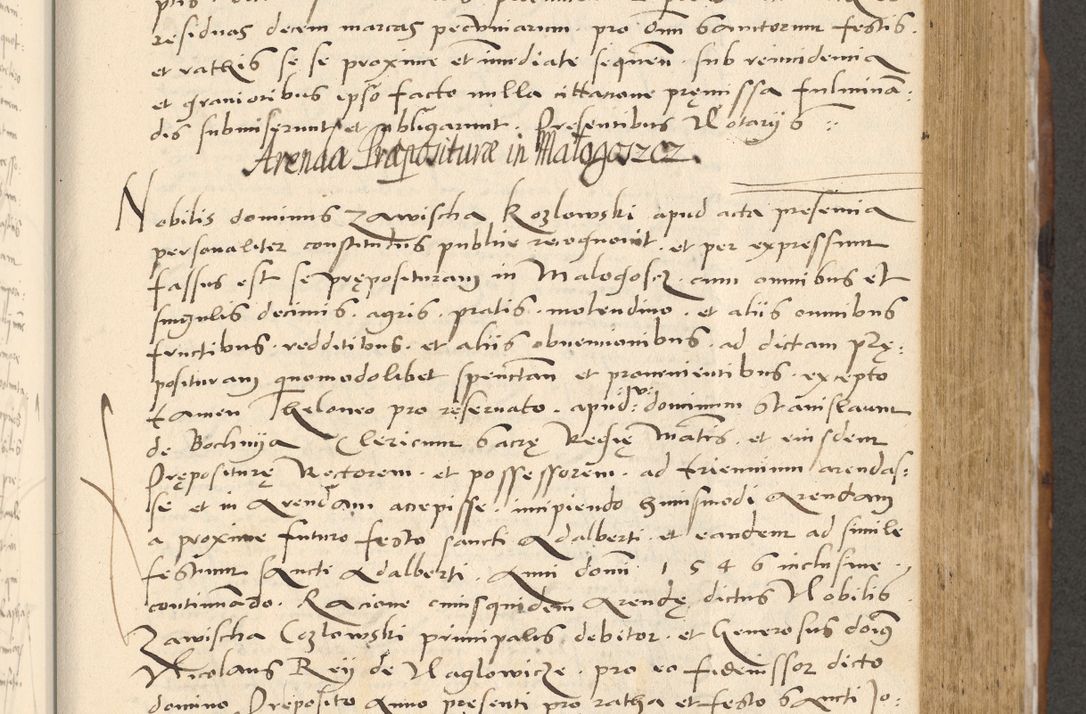 residuas decem marcas pecuniarum · pro Omn Sanctorum festis ·
et rathis se se proxime et immediate sequen̄ · sub reincidencia
et gravioribus ipso facto nulla cittacione pręmissa fulminā:
dis submiserunt et obligarunt · Presentibus Notarijs ::
Arenda Præposituræ in Małogoszcz.
Nobilis dominus Zawischa Kozlowski apud acta presencia
personaliter constitutus publice recognovit · et per expressum
fassus est se pręposituram in Malogoscz · cum omnibus et
singulis decimis · agris · pratis · molendino · et aliis omnibus
fructibus · redditibus · et aliis obvencionibus · ad dictam prę:
posituram quomodolibet spectan̄ et provenientibus · excepto
tamen Theloneo pro reservato · apud dominum Stanislaum
de Bochnija Clericum Sacrę Regię Matis · et eiusdem
Prępositurę Rectorem · et possessorem · ad triennium arendas:
se et in Arendam accepisse · incipiendo huiusmodi Arendam
a proxime futuro festo sancti Adalberti · et eandem ad simile
festum Sancti Adalberti · Anni domi · 1 5 4 6 inclusive ·
continuando · Racione cuiusquidem Arendę dictus Nobilis
Zawischa Cozlowski principalis debitor · et Generosus doiꝰ
Nicolaus Reij de Naglowicze · pro eo fideiussor dicto
domino Preposito Anno presenti pro ratha et festo Sancti Jo: